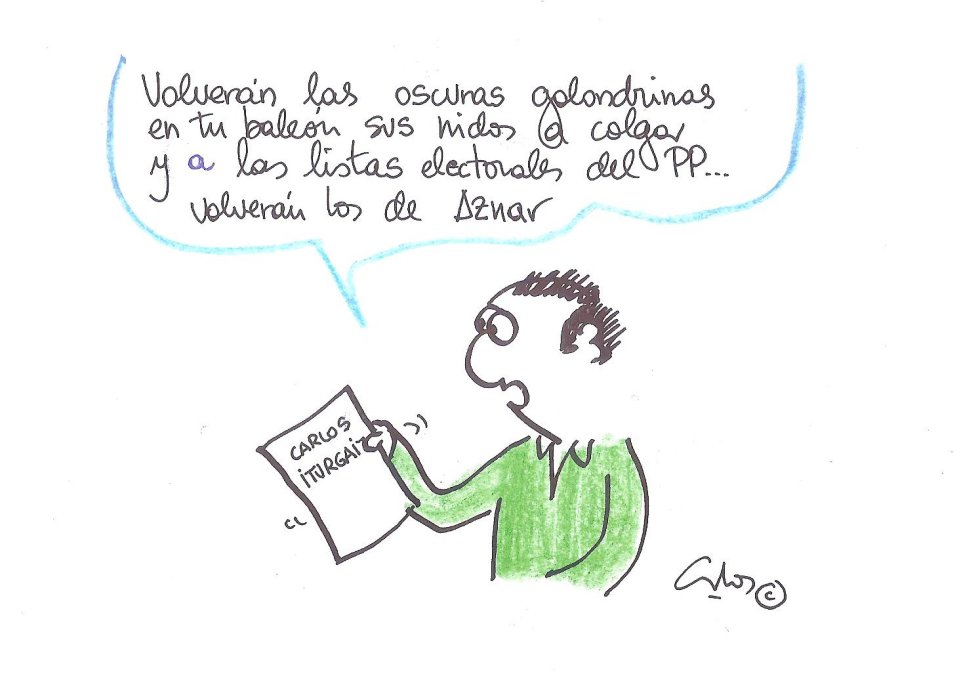 Volverán las oscuras golondrinas
en tu balcón sus nidos a colgar
y a las listas electorales del PP...
volverán los de Aznar
CARLOS
ITURGAIZ
Carlos ©